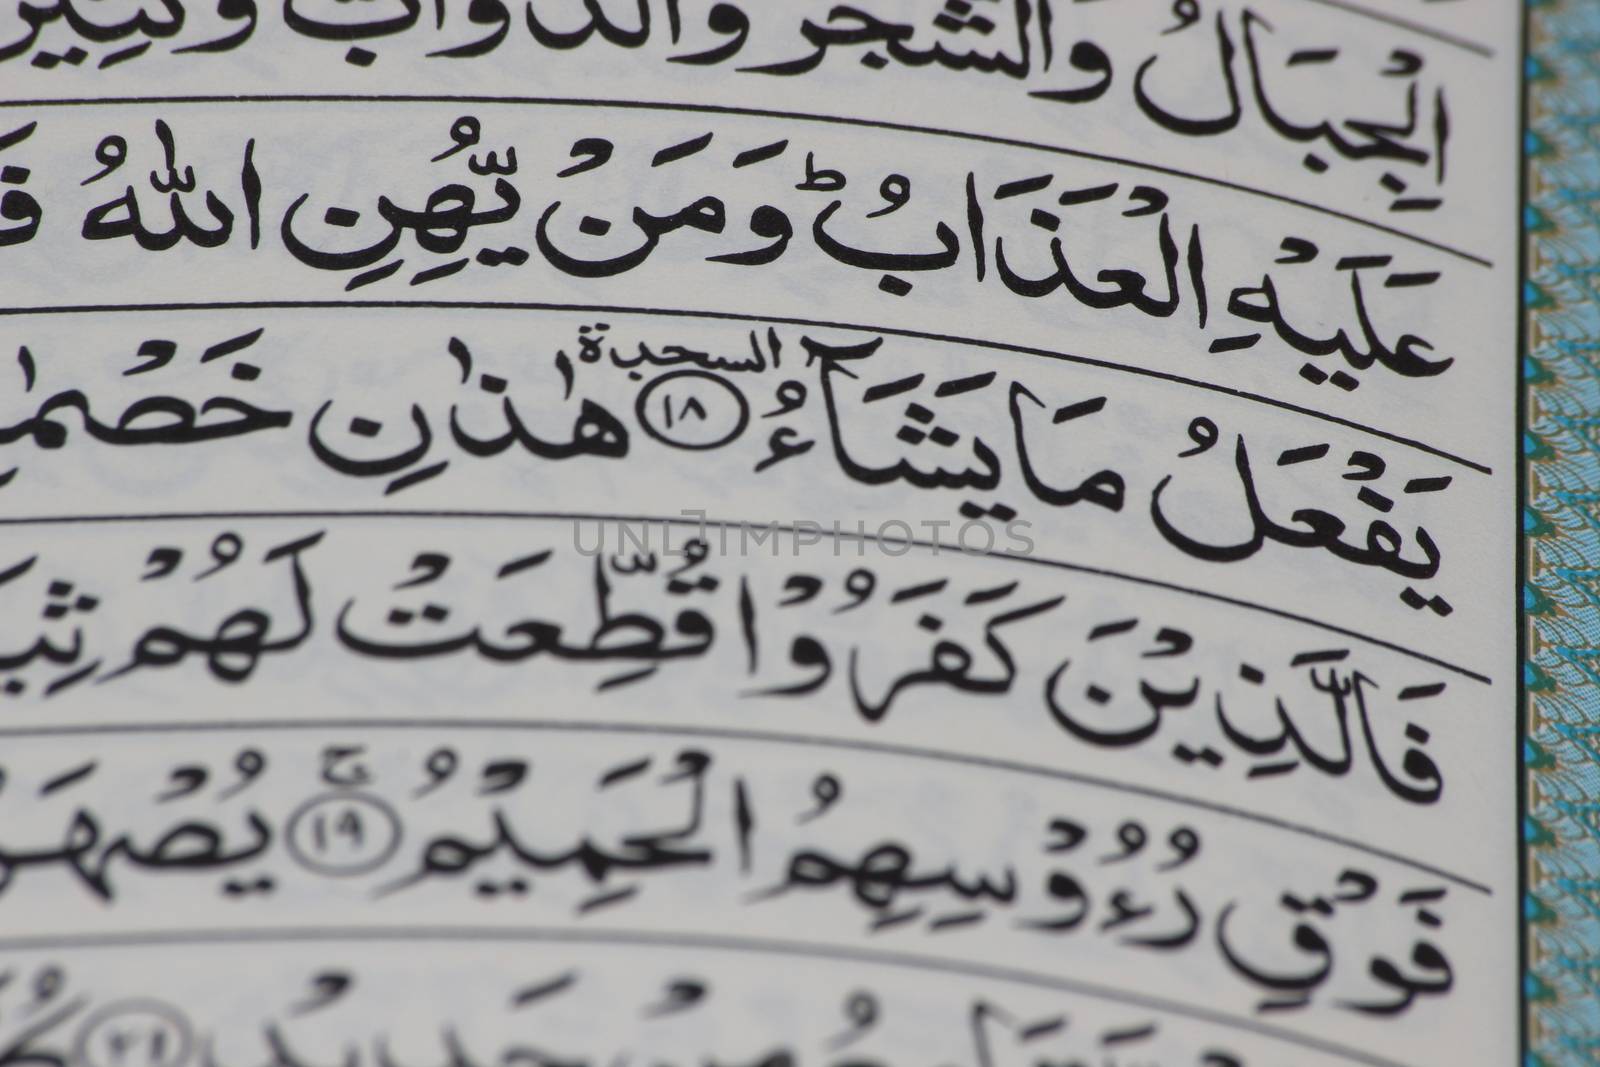 الْجِبَالُ وَالشَّجَرُ وَالدَّوَآبُّ وَكَثِيرٌ
عَلَيْهِ الْعَذَابُ ؕ وَمَنْ يُّهِنِ اللّٰهُ
السجدة
يَفْعَلُ مَا يَشَآءُ ۱۸ هٰذٰنِ خَصْمٰنِ
فَالَّذِيْنَ كَفَرُوْا قُطِّعَتْ لَهُمْ
فَوْقِ رُءُوْسِهِمُ الْحَمِيْمُ ۚ ۱۹ يُصْهَرُ
UNLIMPHOTOS